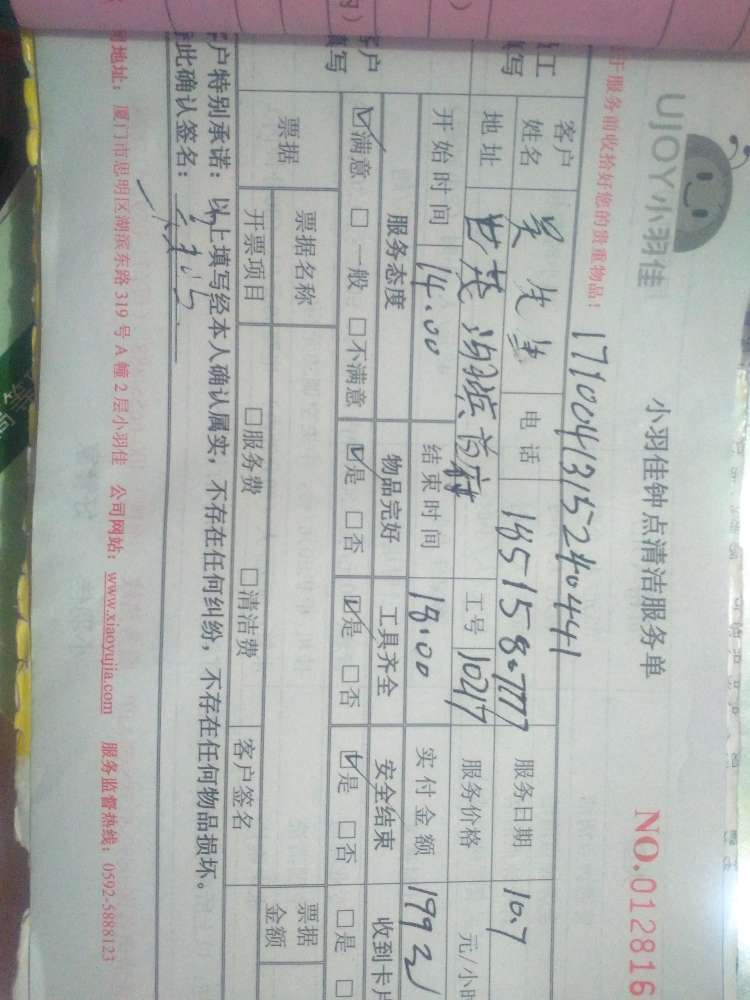 UJOY小羽佳
小羽佳钟点清洁服务单
NO.012816
于服务前收拾好您的贵重物品！
1710041315240441
工
填写
客户
姓名
吴先生
电话
服务日期
10.7
地址
世茂湖滨首府
工号
10217
服务价格
元/小时
开始时间
14.00
结束时间
18.00
实付金额
199元
客户
填写
服务态度
物品完好
工具齐全
安全结束
收到卡片
☑满意 □一般 □不满意
☑是 □否
☑是 □否
☑是 □否
□是 □
票据
票据名称
□服务费
□清洁费
票据
金额
开票项目
客户签名
户特别承诺：以上填写经本人确认属实，不存在任何纠纷，不存在任何物品损坏。
此确认签名：
司地址：厦门市思明区湖滨东路319号A幢2层小羽佳 公司网站：www.xiaoyujia.com 服务监督热线：0592-5888123